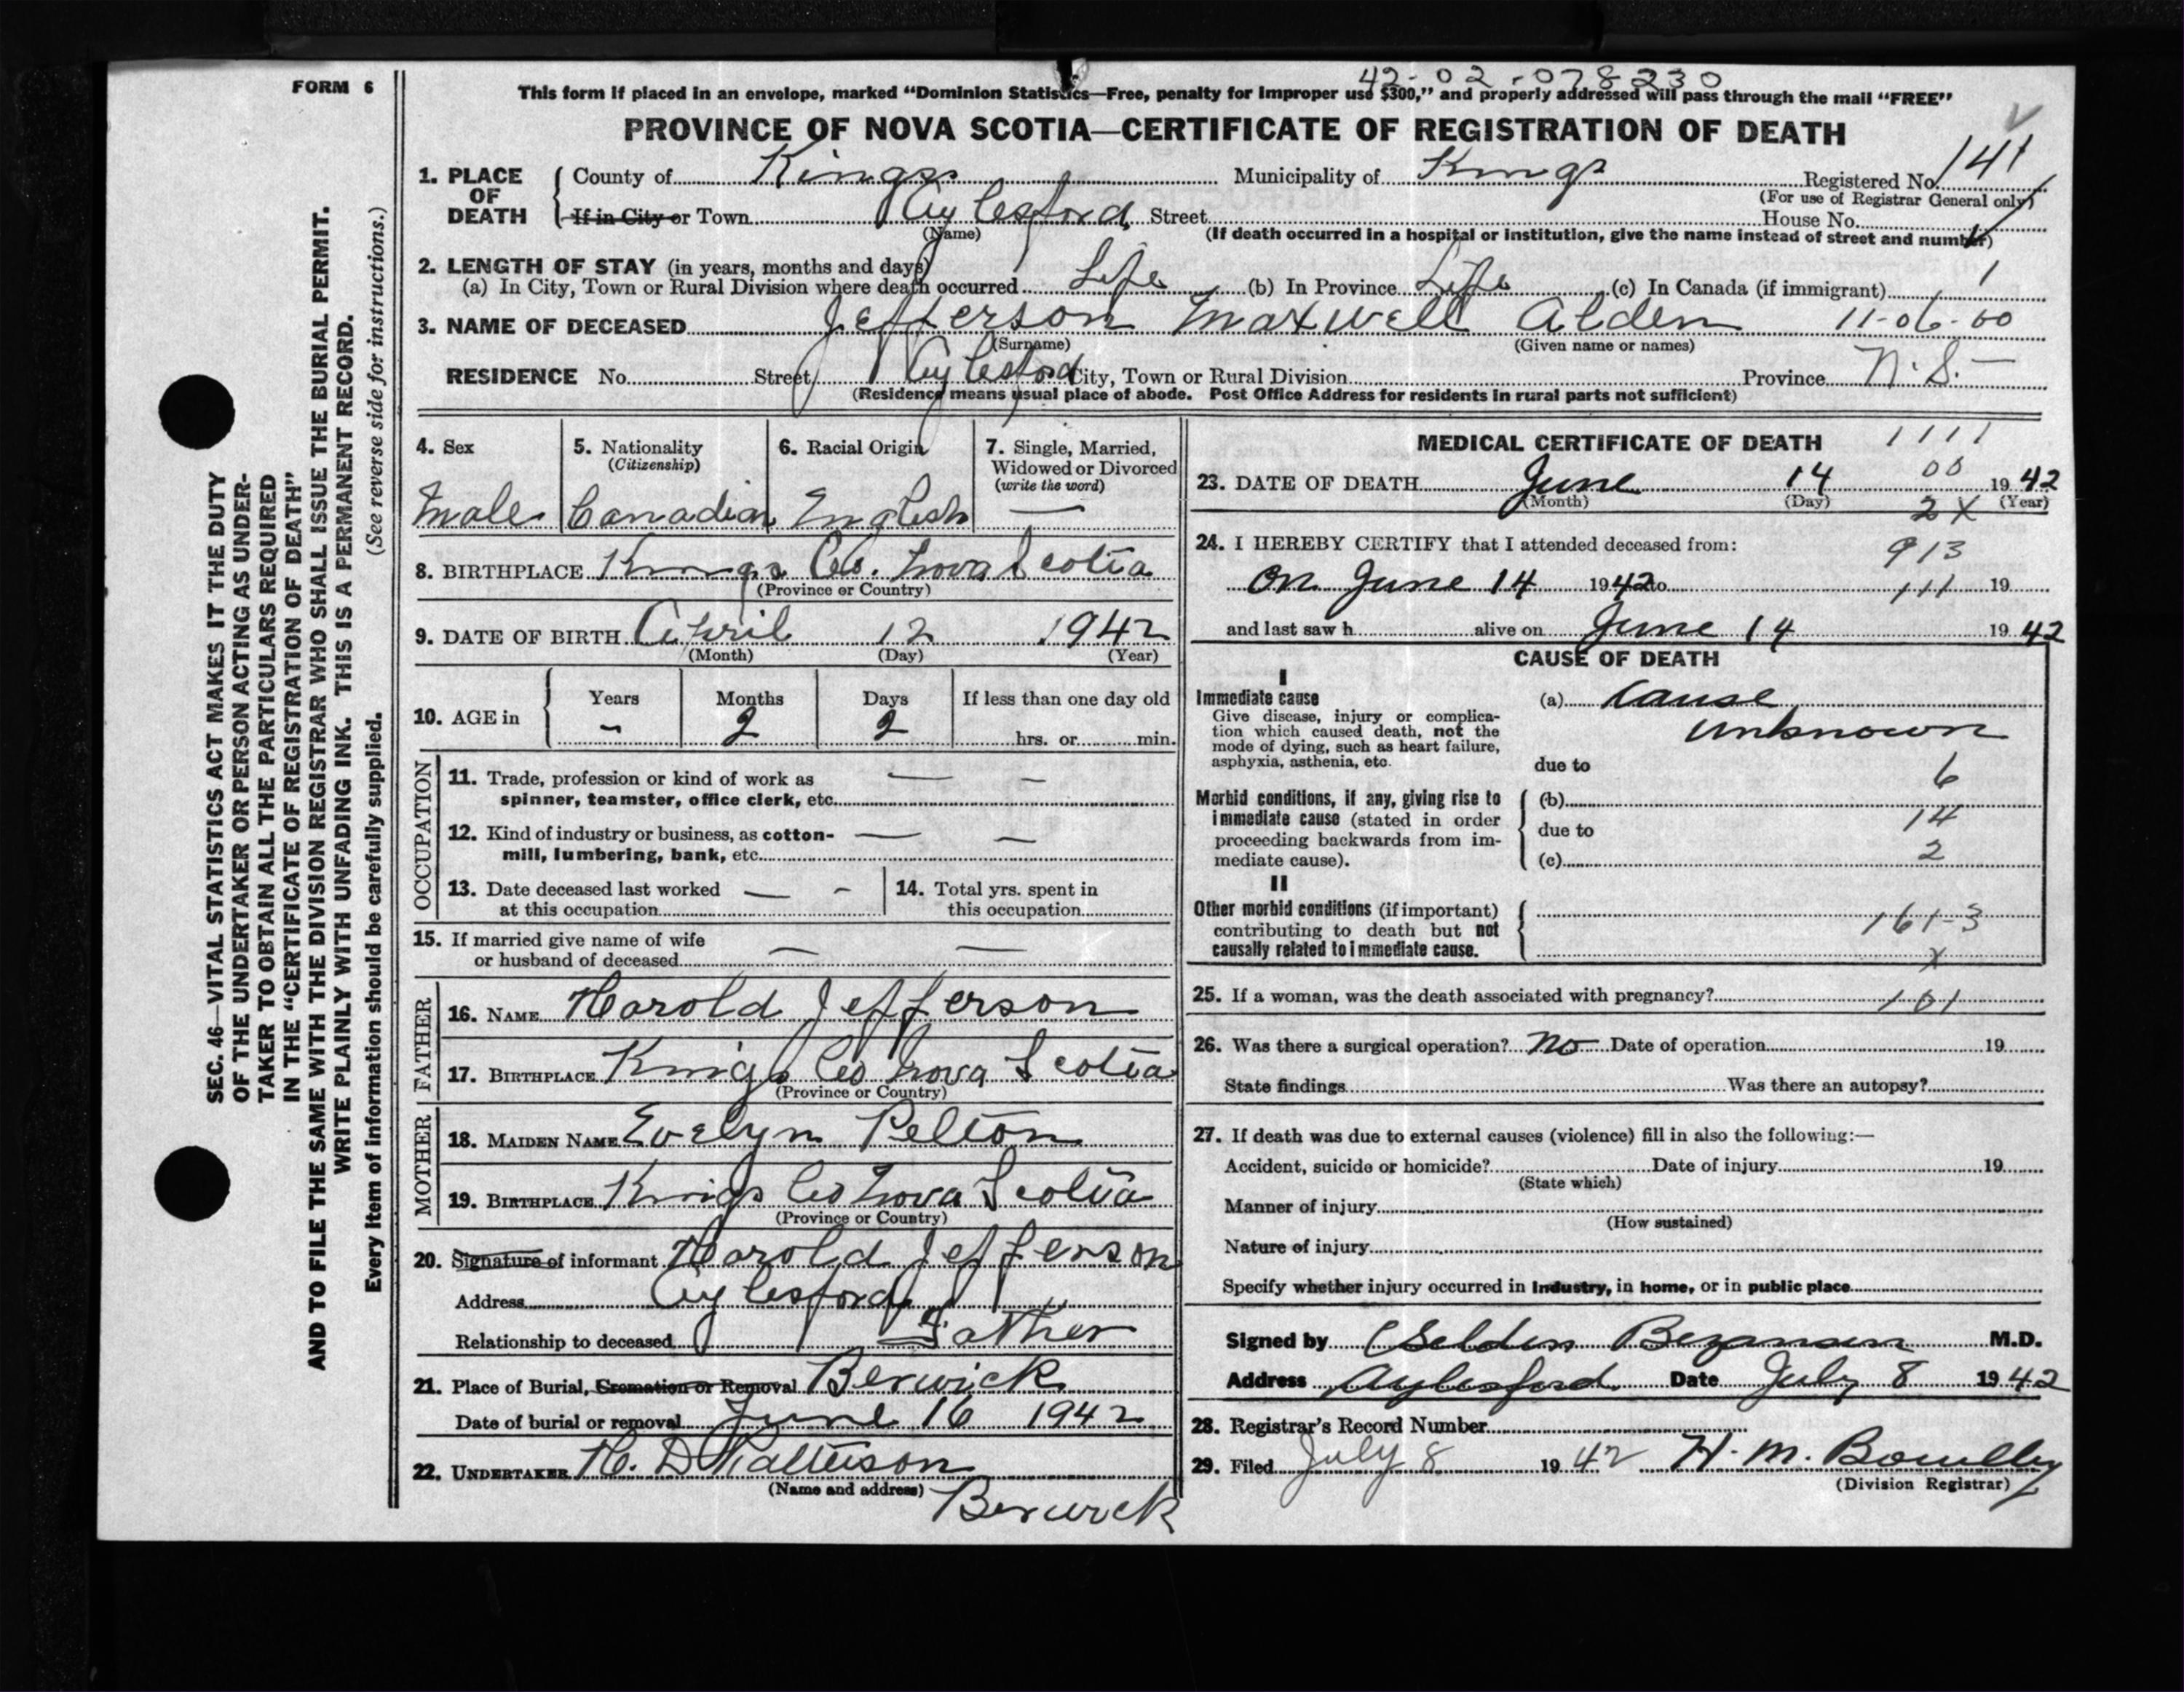 FORM 6
42-02-078230
This form if placed in an envelope, marked "Dominion Statistics—Free, penalty for improper use $300," and properly addressed will pass through the mail "FREE"
PROVINCE OF NOVA SCOTIA—CERTIFICATE OF REGISTRATION OF DEATH
SEC. 46—VITAL STATISTICS ACT MAKES IT THE DUTY
OF THE UNDERTAKER OR PERSON ACTING AS UNDER-
TAKER TO OBTAIN ALL THE PARTICULARS REQUIRED
IN THE "CERTIFICATE OF REGISTRATION OF DEATH"
AND TO FILE THE SAME WITH THE DIVISION REGISTRAR WHO SHALL ISSUE THE BURIAL PERMIT.
WRITE PLAINLY WITH UNFADING INK. THIS IS A PERMANENT RECORD.
Every item of information should be carefully supplied. (See reverse side for instructions.)
1. PLACE OF DEATH
County of Kings Municipality of Kings Registered No. 141
(For use of Registrar General only)
If in City or Town Aylesford Street House No.
(Name) (If death occurred in a hospital or institution, give the name instead of street and number)
2. LENGTH OF STAY (in years, months and days)
(a) In City, Town or Rural Division where death occurred Life (b) In Province Life (c) In Canada (if immigrant) 1
3. NAME OF DECEASED Jefferson Maxwell Alden 11-06-00
(Surname) (Given name or names)
RESIDENCE No. Street Aylesford City, Town or Rural Division Province N.S.
(Residence means usual place of abode. Post Office Address for residents in rural parts not sufficient)
4. Sex
Male
5. Nationality
(Citizenship)
Canadian
6. Racial Origin
English
7. Single, Married,
Widowed or Divorced
(write the word)
—
8. BIRTHPLACE Kings Co. Nova Scotia
(Province or Country)
9. DATE OF BIRTH April 12 1942
(Month) (Day) (Year)
10. AGE in Years Months Days If less than one day old
- 2 2 hrs. or min.
OCCUPATION
11. Trade, profession or kind of work as — —
spinner, teamster, office clerk, etc.
12. Kind of industry or business, as cotton- — —
mill, lumbering, bank, etc.
13. Date deceased last worked — -
at this occupation
14. Total yrs. spent in
this occupation
15. If married give name of wife — —
or husband of deceased
FATHER
16. NAME Harold Jefferson
17. BIRTHPLACE Kings Co Nova Scotia
(Province or Country)
MOTHER
18. MAIDEN NAME Evelyn Pelton
19. BIRTHPLACE Kings Co Nova Scotia
(Province or Country)
20. Signature of informant Harold Jefferson
Address Aylesford
Relationship to deceased Father
21. Place of Burial, Cremation or Removal Berwick
Date of burial or removal June 16 1942
22. UNDERTAKER H. D Patterson
(Name and address) Berwick
MEDICAL CERTIFICATE OF DEATH 1111
00
23. DATE OF DEATH June 14 1942
(Month) (Day) (Year)
2X
24. I HEREBY CERTIFY that I attended deceased from:
913
on June 14 1942 to 19
111
and last saw h alive on June 14 1942
CAUSE OF DEATH
I
Immediate cause
Give disease, injury or complica-
tion which caused death, not the
mode of dying, such as heart failure,
asphyxia, asthenia, etc.
(a) Cause
unknown
due to
6
Morbid conditions, if any, giving rise to
immediate cause (stated in order
proceeding backwards from im-
mediate cause).
(b)
14
due to
2
(c)
II
Other morbid conditions (if important)
contributing to death but not
causally related to immediate cause.
161-3
X
25. If a woman, was the death associated with pregnancy? 101
26. Was there a surgical operation? No Date of operation 19
State findings Was there an autopsy?
27. If death was due to external causes (violence) fill in also the following:—
Accident, suicide or homicide? Date of injury 19
(State which)
Manner of injury
(How sustained)
Nature of injury
Specify whether injury occurred in Industry, in home, or in public place
Signed by Bezanson M.D.
Address Aylesford Date July 8 1942
28. Registrar's Record Number
29. Filed July 8 1942 H. M.
(Division Registrar)